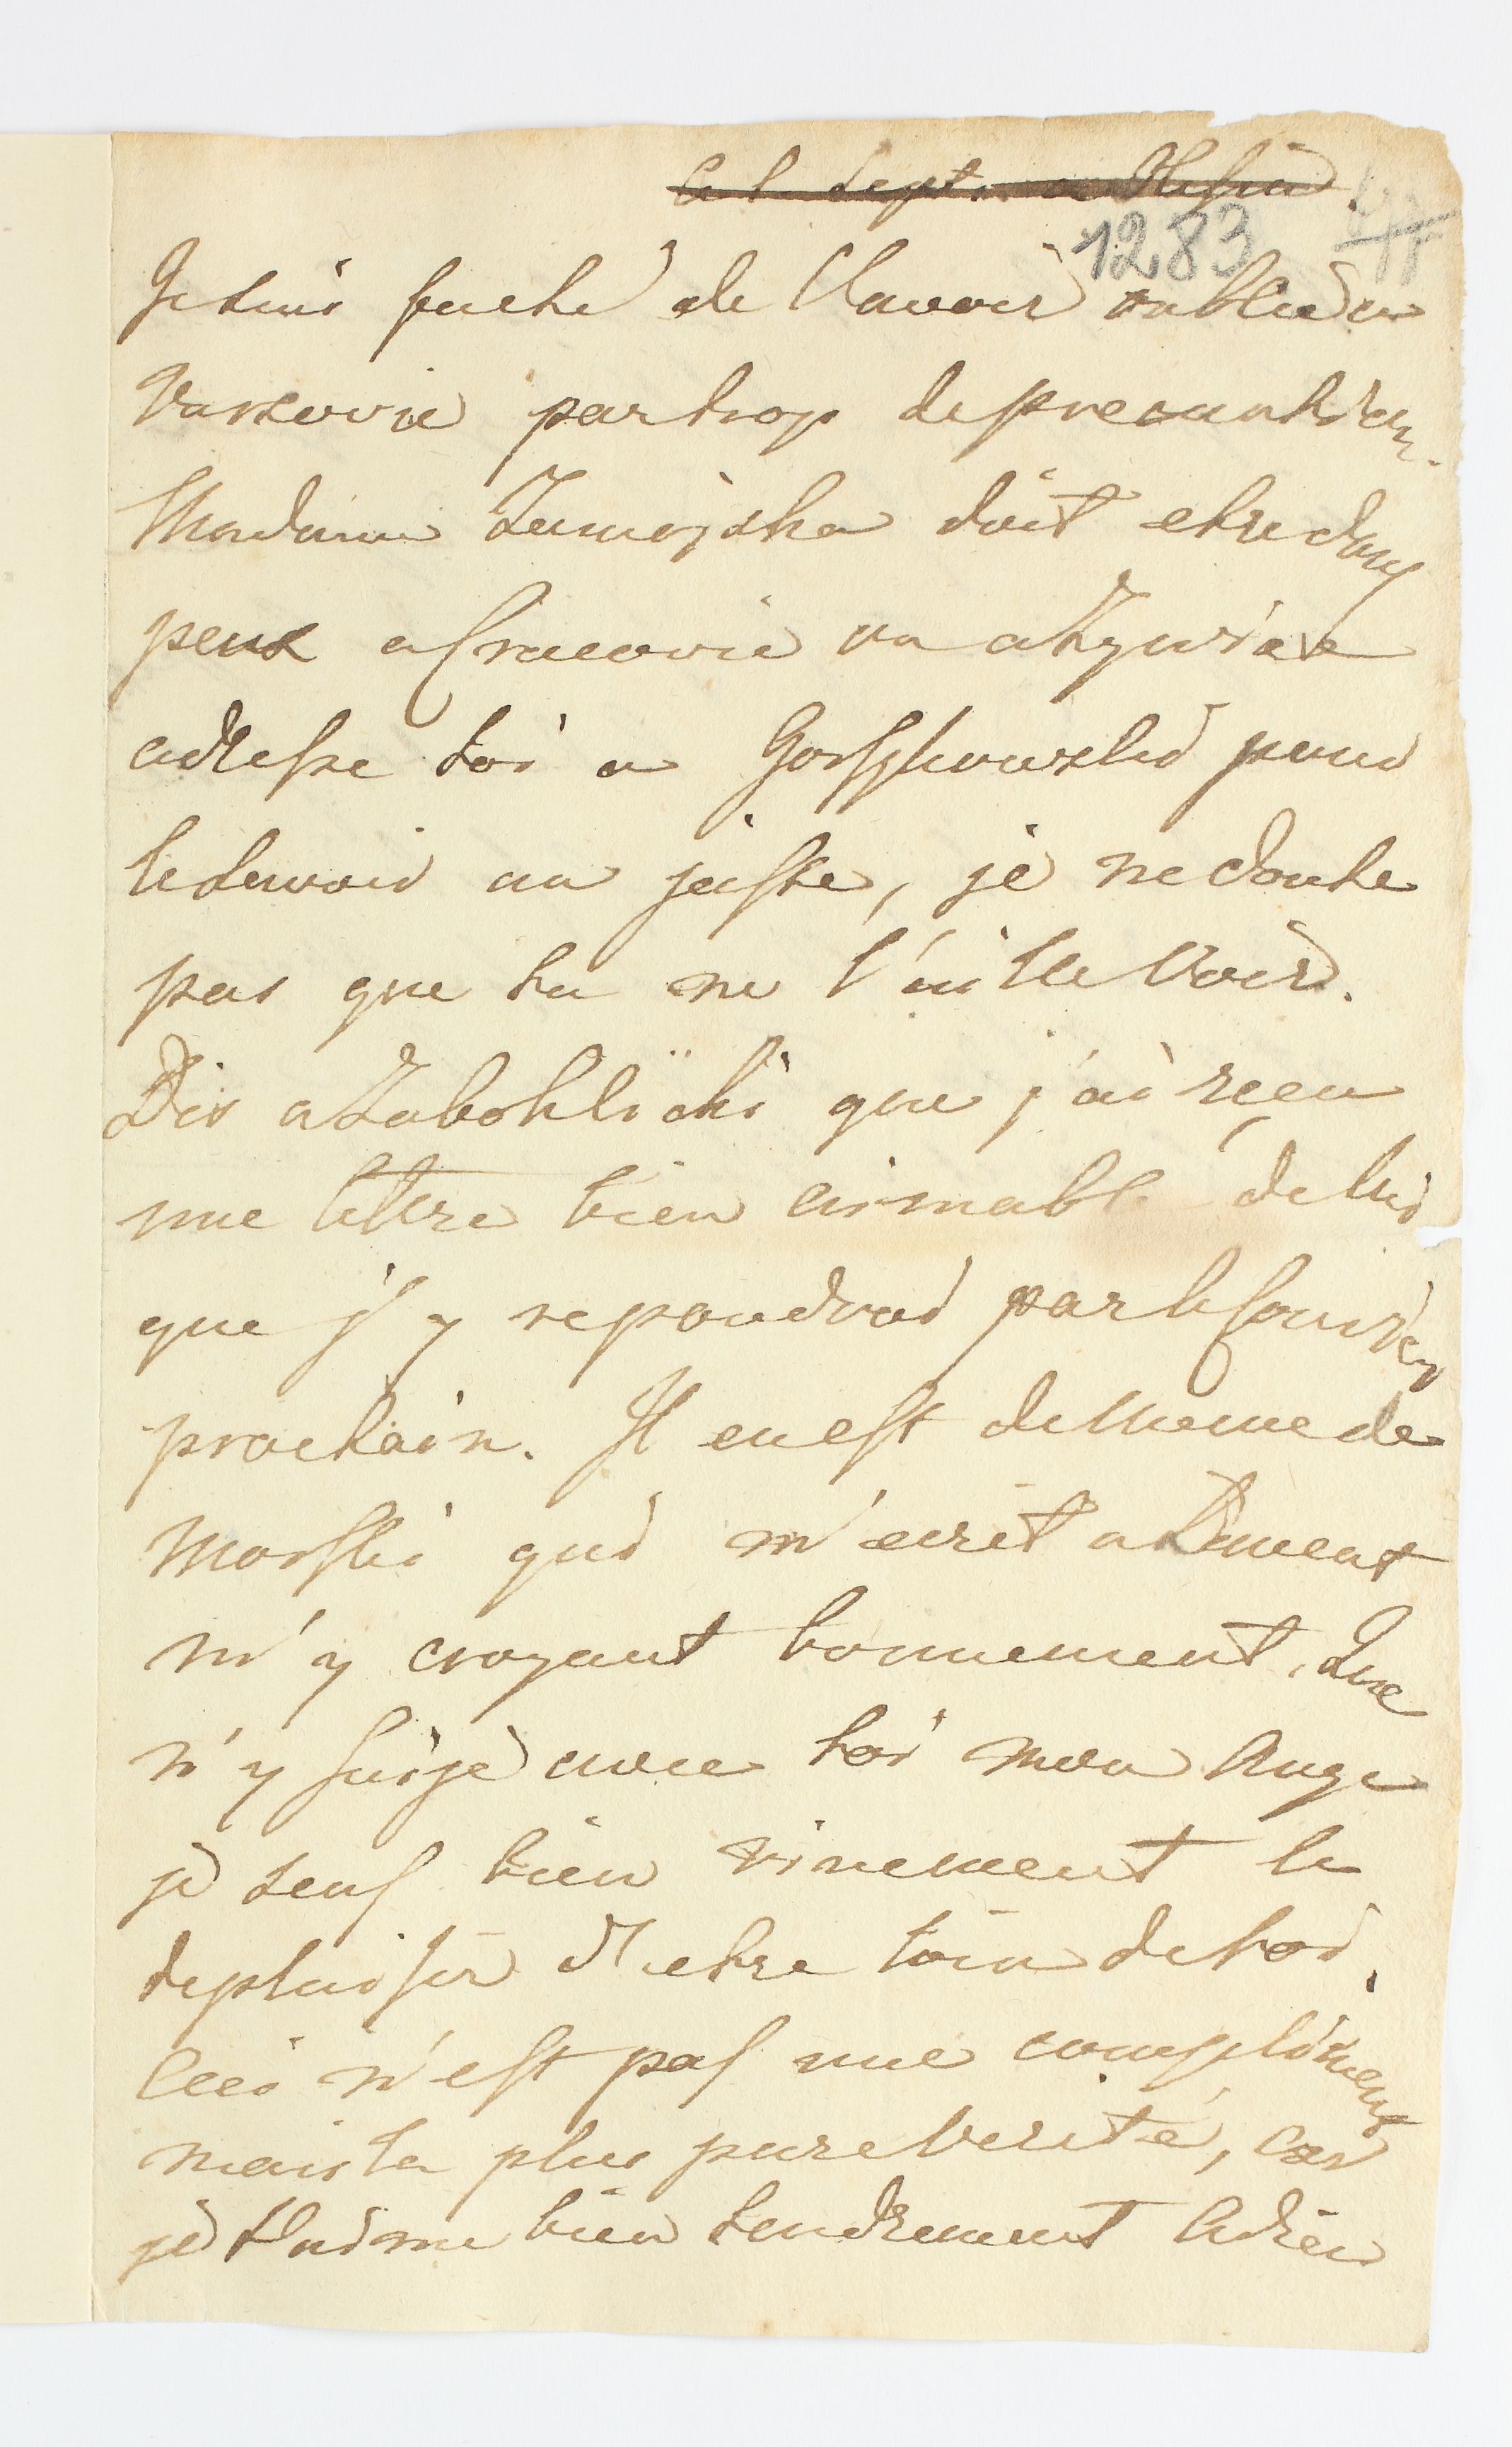 Ce 1 Sept. a
1283
Je suis faché de l'avoir oublié a
Varsovie par trop de precaution.
Madame Zamojska doit etre dans
peux a Cracovie ou a
adresse toi a pour
le savoir au juste, je ne doute
pas que tu ne l'aille voir.
Dis a que j'ai reçu
une lettre bien aimable de lui
que j'y repondrai par le Courier
prochain. Il en est de meme de
Morski qui m'ecrit a Lément
m'y croyant bonnement. Que
n'y suis je avec toi mon Ange
je sens bien vivement le
deplaisir d'etre loin de toi,
Ceci n'est pas une compliment
mais la plus pure verité, car
je t'aime bien tendrement Adieu